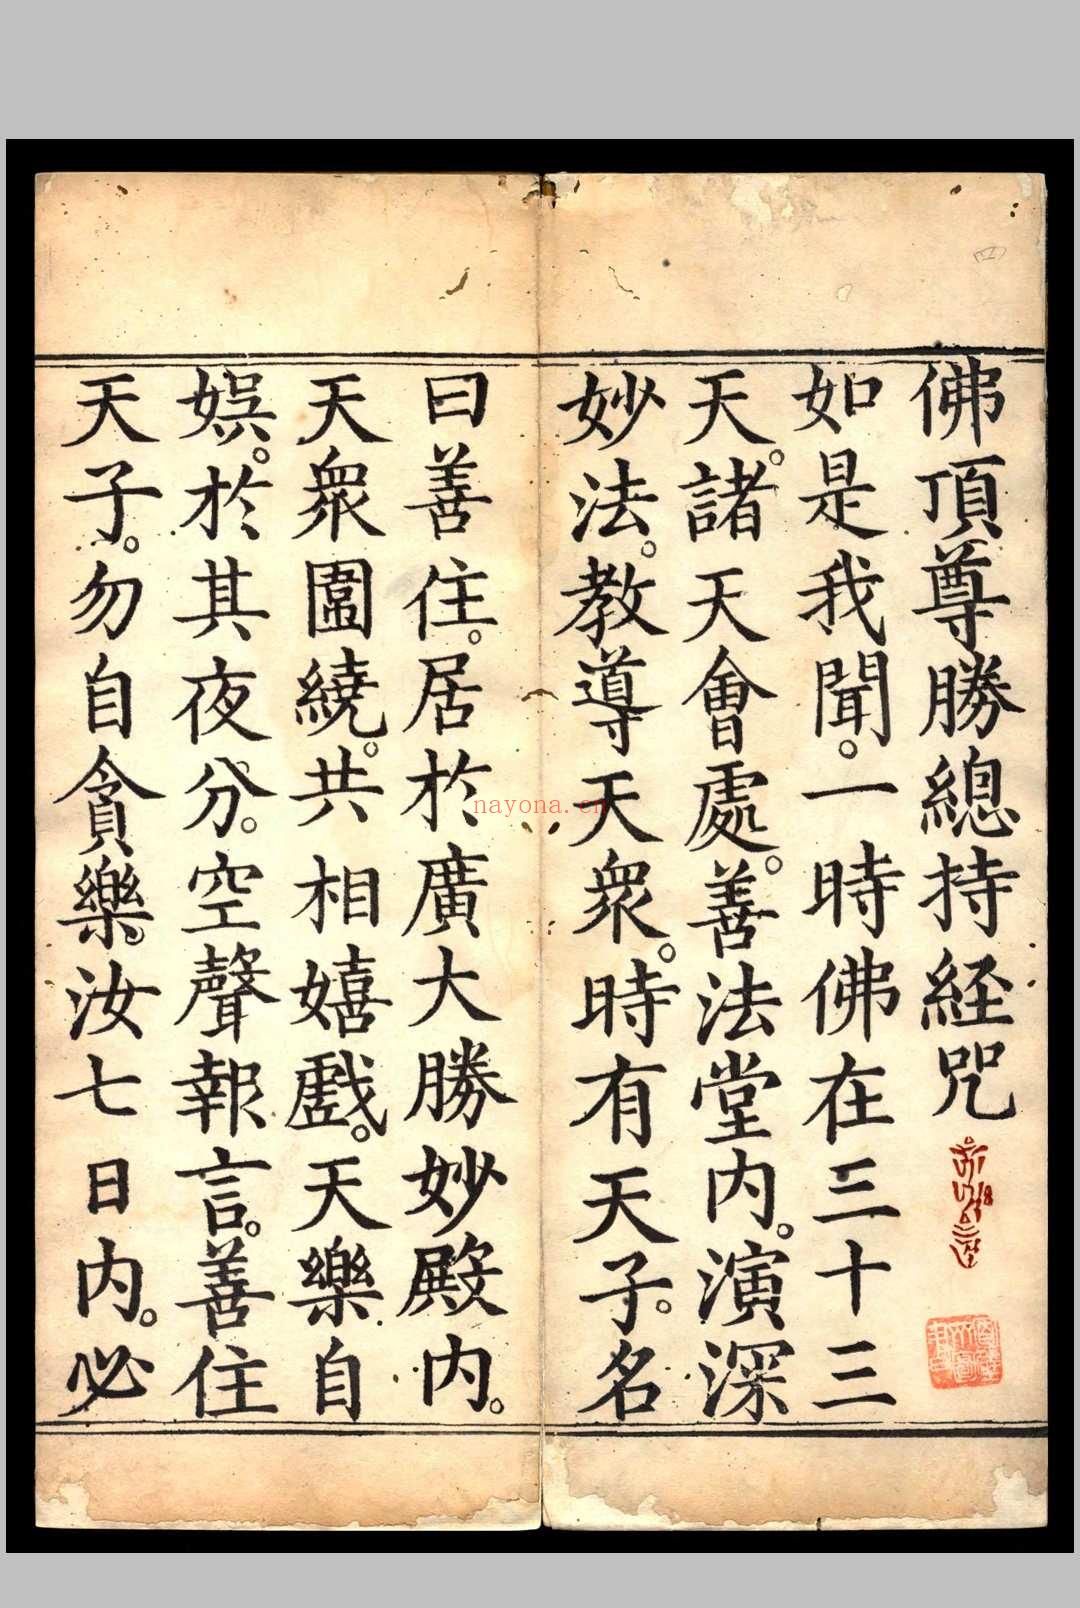 佛頂尊勝總持経咒
如是我聞。一時佛在三十三
天。諸天會處。善法堂内。演深
妙法。教導天衆。時有天子。名
曰善住。居於廣大勝妙殿内。
天衆圍繞。共相嬉戲。天樂自
娯。於其夜分。空聲報言。善住
天子。勿自貪樂。汝七日内。必
nayona.cn